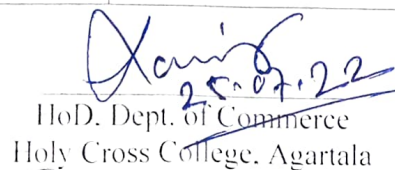 25.07.22
HoD. Dept. of Commerce
Holy Cross College. Agartala